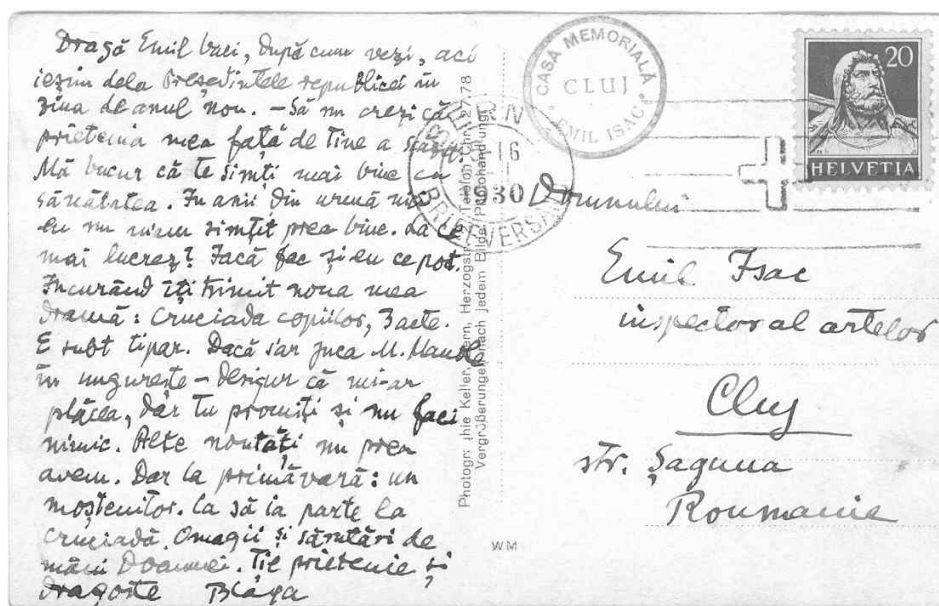 Dragă Emil baci, după cum vezi, aci
ieșim dela Președintele republicei în
ziua de anul nou. – Să nu crezi că
prietenia mea față de tine a
Mă bucur că te simți mai bine cu
sănătatea. În anii din urmă nici
eu nu m'am simțit prea bine. La ce
mai lucrez? Iacă fac și eu ce pot.
Încurând îți trimit noua mea
dramă: Cruciada copiilor, 3 acte.
E subt tipar. Dacă s'ar juca M. Manole
în ungurește – desigur că mi-ar
plăcea, dar tu promiți și nu faci
nimic. Alte noutăți nu prea
avem. Dar la primăvară: un
moștenitor. Ca să ia parte la
cruciadă. Omagii și sărutări de
mâni Doamnei. Ție prietenie și
dragoste Blaga
Photogr. Keller, Bern, Herzogstr. Telephon Chr. 27.78
Vergrößerungen nach jedem Bilde. Photohandlung
WM
CASA MEMORIALĂ
CLUJ
EMIL ISAC
BERN
16
1930
BRIEFVERSAND
20
HELVETIA
Domnului
Emil Isac
inspector al artelor
Cluj
str. Șaguna
Roumanie